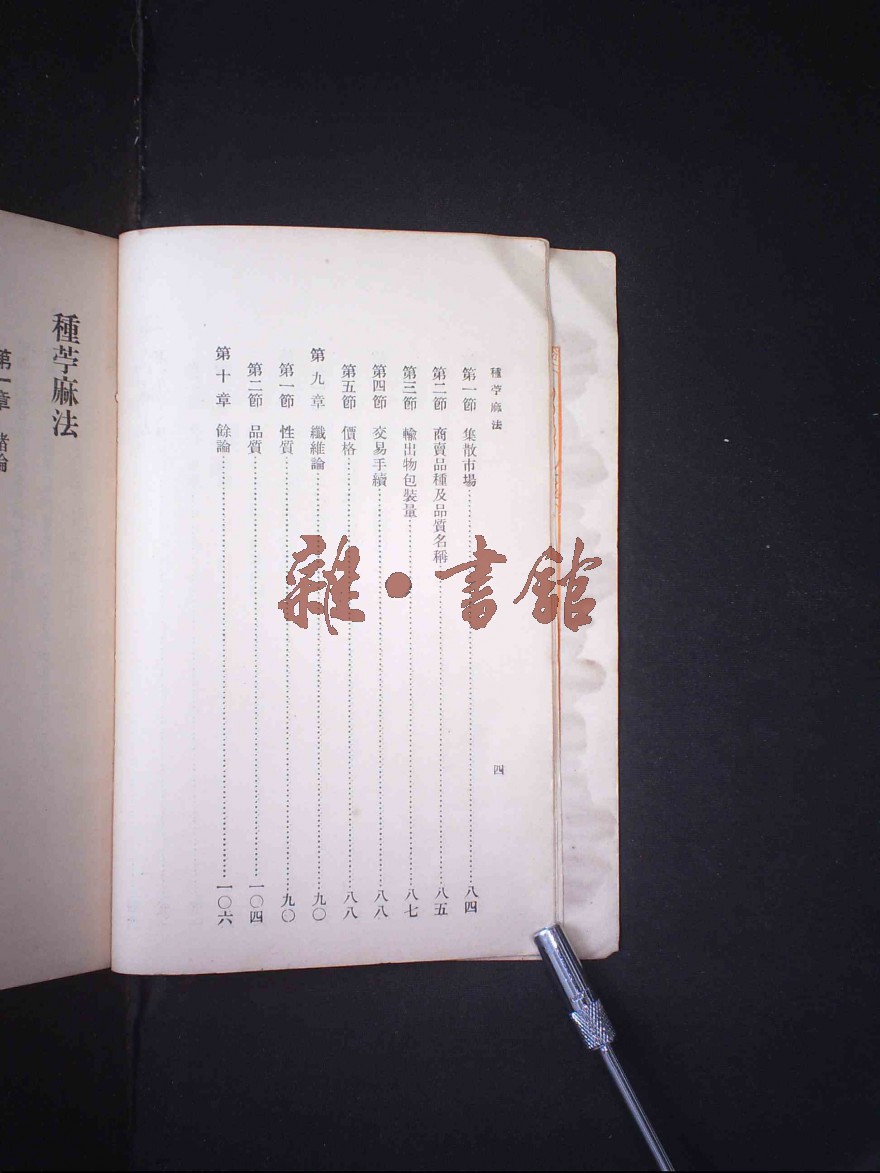 種苧麻法
四
第一節 集散市場 八四
第二節 商賣品種及品質名稱 八五
第三節 輸出物包裝量 八七
第四節 交易手續 八八
第五節 價格 八八
第九章 纖維論 九〇
第一節 性質 九〇
第二節 品質 一〇四
第十章 餘論 一〇六
種苧麻法
第一章 緒論
雜·書館